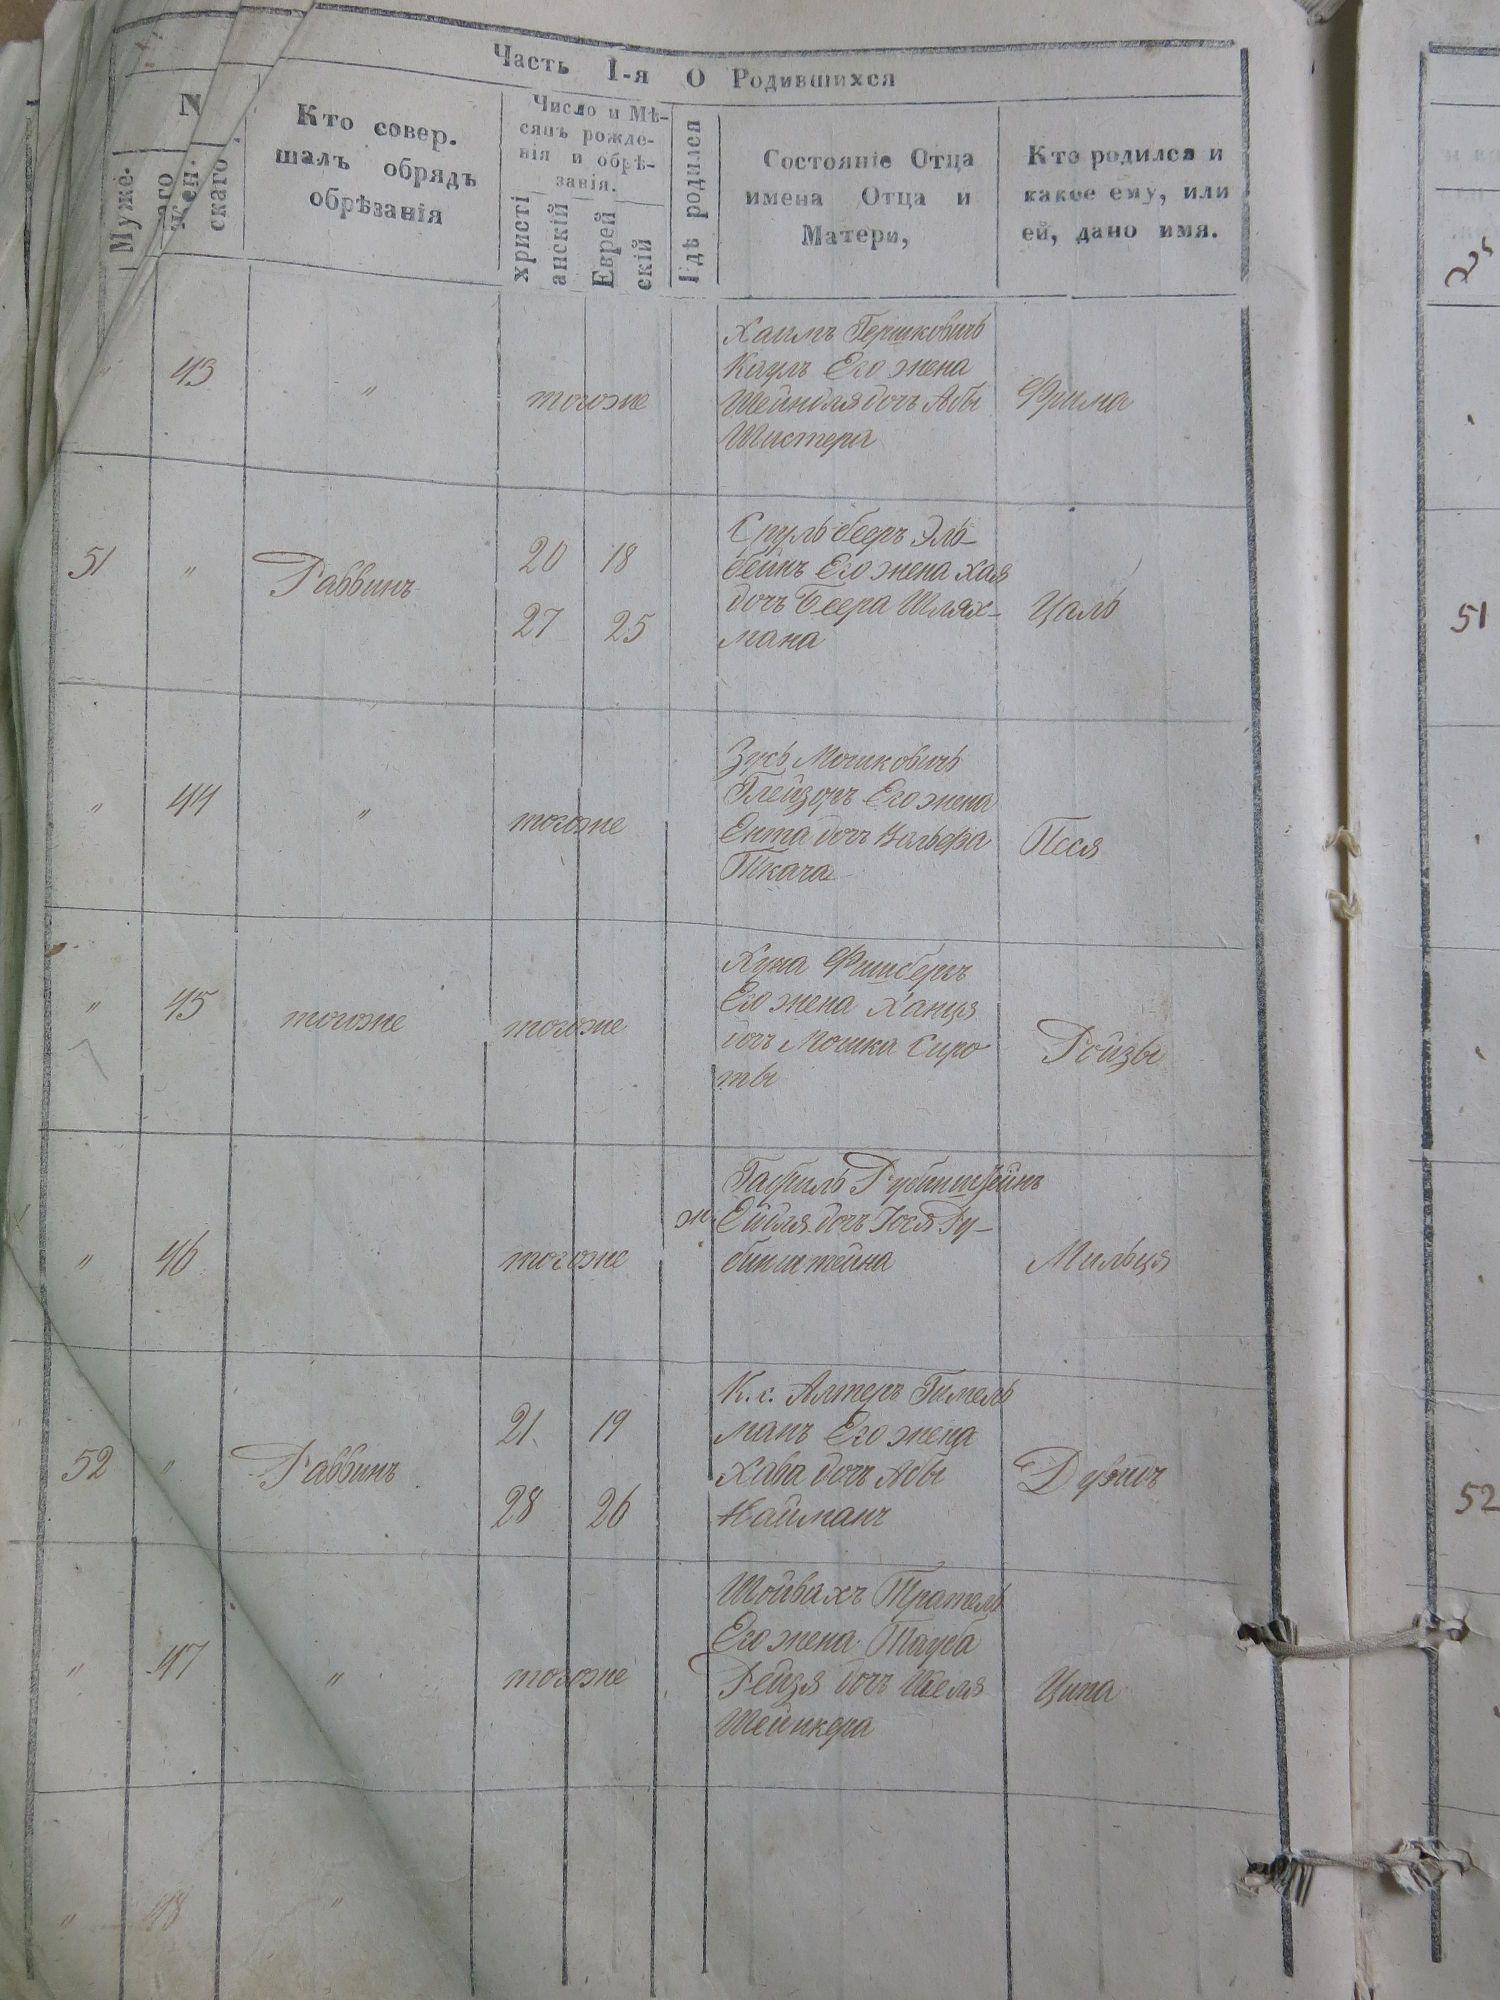 Часть I-я О Родившихся
N
Муже-
аго
Жен-
скаго
Кто совер.
шалъ обрядъ
обрѣзанія
Число и Мѣ-
сяцъ рожде-
нія и обрѣ-
занія.
христі
анскій
Еврей
скій
Гдѣ родился
Состояніе Отца
имена Отца и
Матери,
Кто родился и
какое ему, или
ей, дано имя.
" 43 " тогоже
Хаимъ Гершковичъ
Кауль Его жена
Шейндля дочь Абы
Шистера
Фрима
51 " Раввинъ
20 18
27 25
Сруль беръ Эль-
бейнъ Его жена Хая
дочь Беера Шлях-
мана
Цаль
" 44 " тогоже
Зусь Мошковичь
Глейзеръ Его жена
Ента дочь Вольфа
Ткача
Песя
" 45 тогоже тогоже
Хуна Фишбергъ
Его жена Ханця
дочь Мошка Сиро
ты
Ройзы
" 46 тогоже
Гавриль Рубинштейнъ
ж. Ейдля дочь Іося Ру-
бинштейна
Мильця
52 " Раввинъ
21 19
28 26
К. с. Алтеръ Гимель
манъ Его жена
Хава дочь Абы
Найманъ
" 47 " тогоже
Шойвахъ
Его жена Тауба
Рейзя дочь
Шейнкера
Ципа
" 48 "
51
52